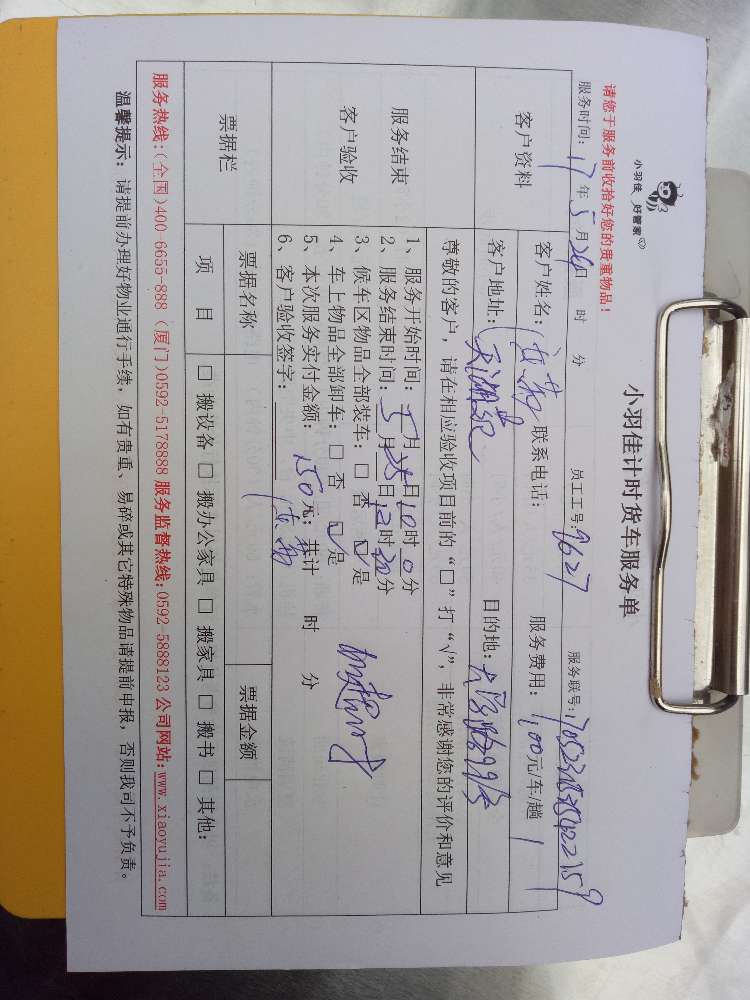 小羽佳 好管家
小羽佳计时货车服务单
请您于服务前收拾好您的贵重物品！
员工工号：9627 服务联号：
服务时间：17年5月 日 时 分
客户资料
客户姓名： 联系电话： 服务费用： 00元/车/趟
客户地址：天湖苑 目的地：大学路99号
尊敬的客户，请在相应验收项目前的“□”打“√”，非常感谢您的评价和意见
服务结束
客户验收
1、服务开始时间：5月25日10时0分
2、服务结束时间：5月25日12时30分
3、候车区物品全部装车：□ 否 □ 是
4、车上物品全部卸车：□ 否 □ 是
5、本次服务实付金额：150元；共计 时 分
6、客户验收签字：
票据栏
票据名称 票据金额
项 目 □ 搬设备 □ 搬办公家具 □ 搬家具 □ 搬书 □ 其他：
服务热线：(全国)400-6655-888 (厦门)0592-5178888 服务监督热线：0592-5888123 公司网站：www.xiaoyujia.com
温馨提示：请提前办理好物业通行手续，如有贵重、易碎或其它特殊物品请提前申报，否则我司不予负责。